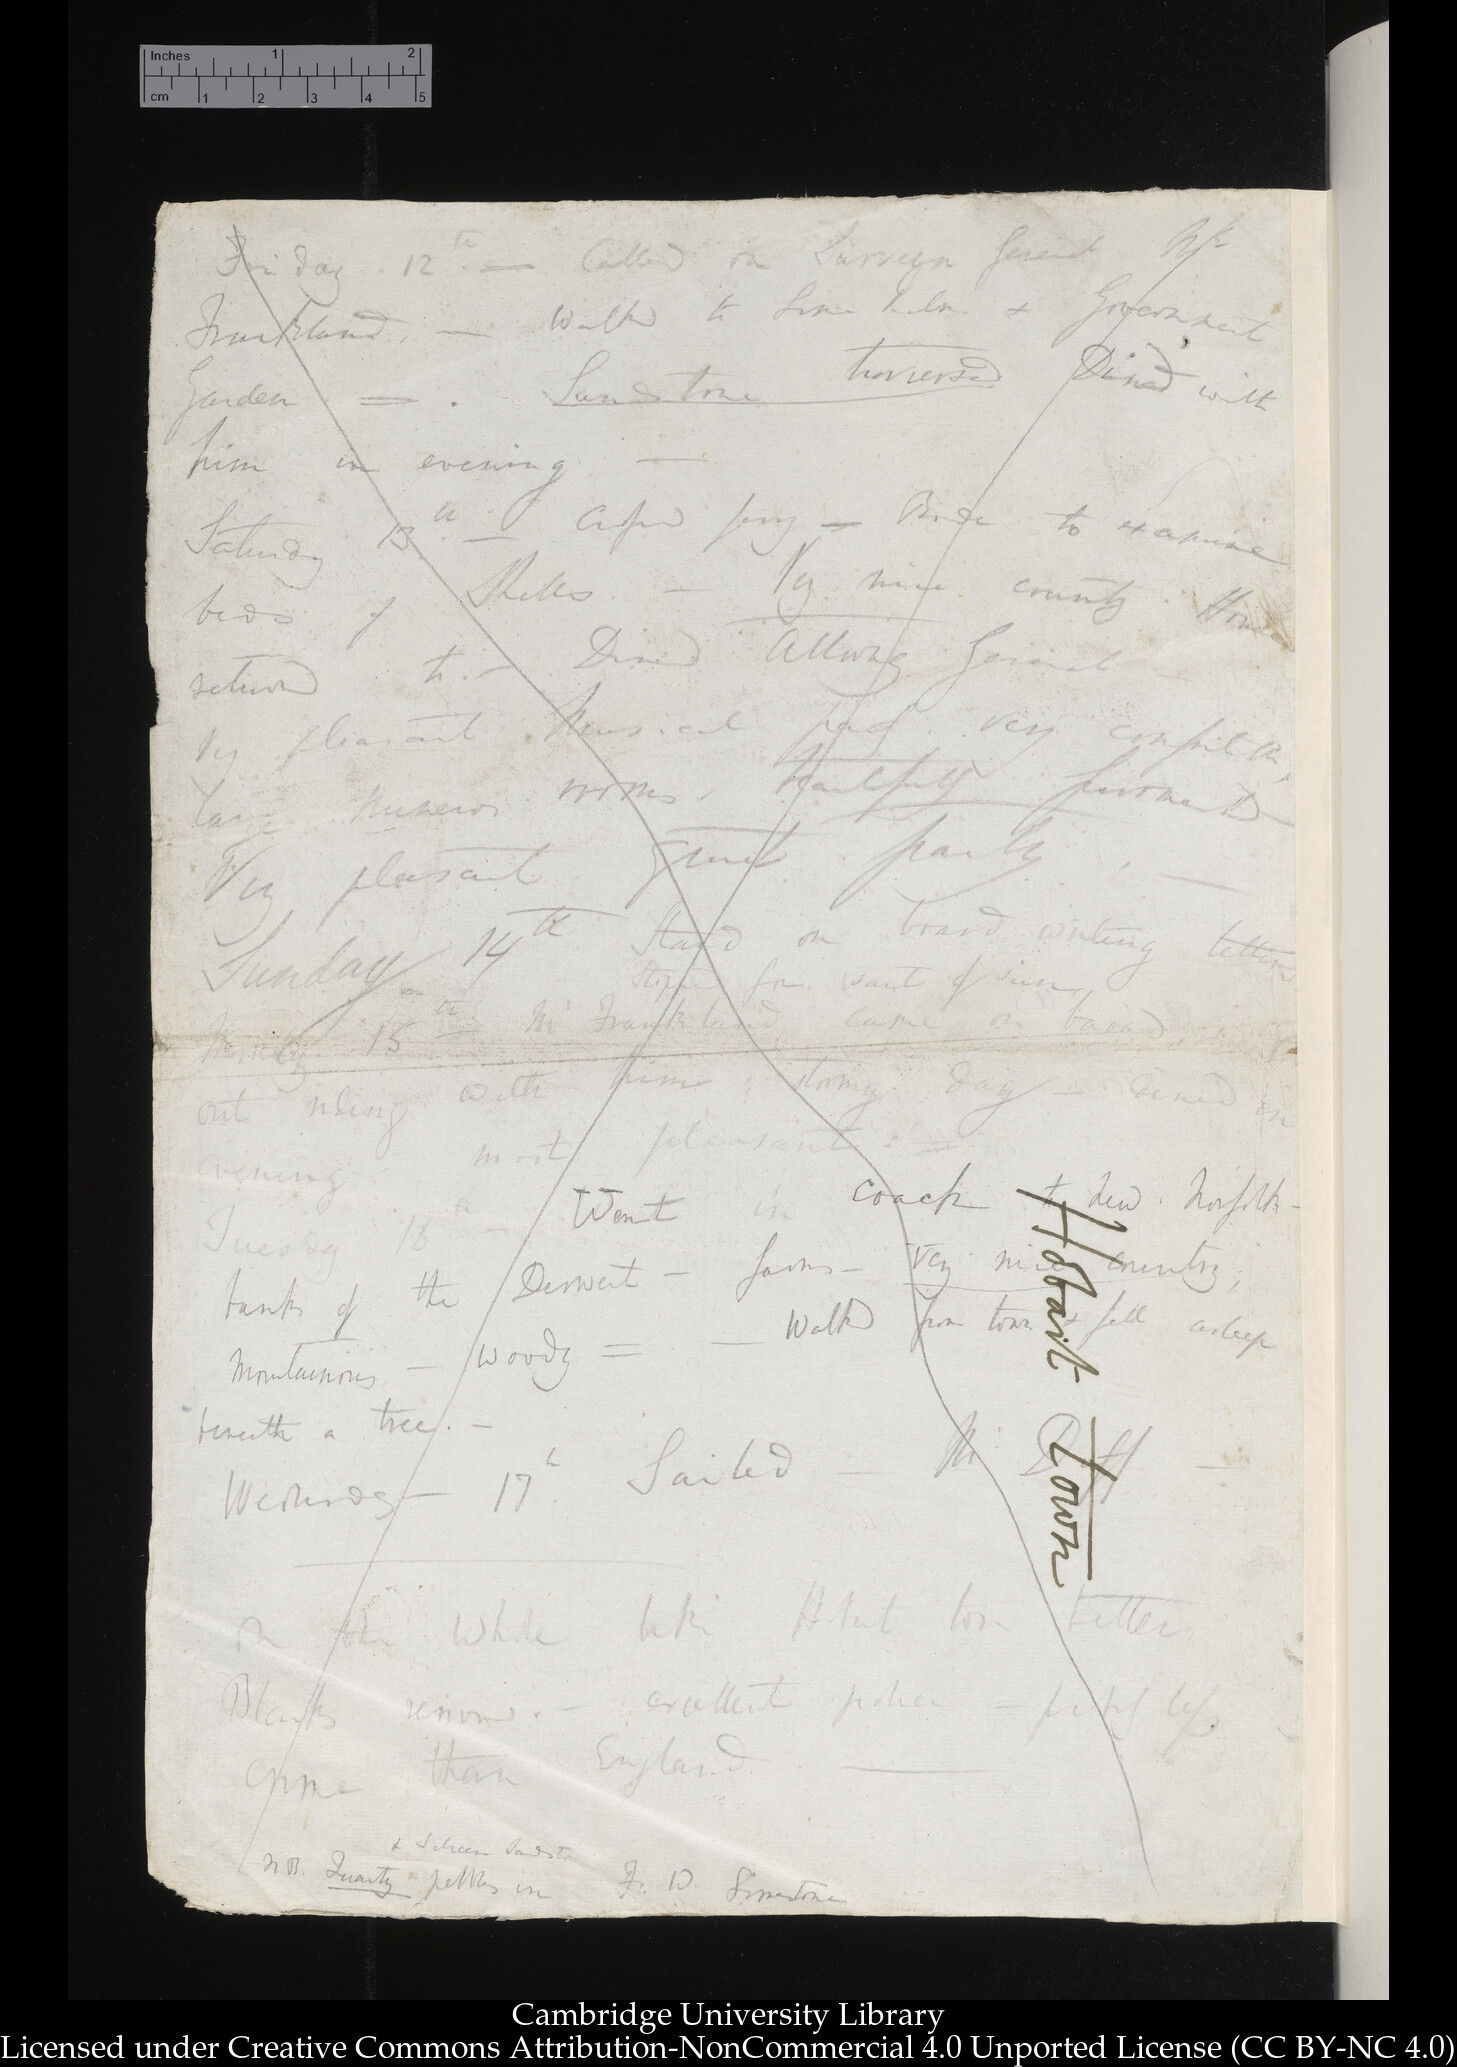 Inches 1 2
cm 1 2 3 4 5
Friday 12th — Called on Surveyor General Mr
Frankland. — Walked to Lime kiln & Government
Garden — . Sandstone traversed Dined with
him in evening —
Saturday 13th — Rode to examine
beds of Shells — Very nice country. House
returned to. — Dined Attorney General —
Very pleasant Musical very
large numerous rooms. beautifully
Very pleasant party. —
Sunday 14th Staid on board writing letters
stopped for want of
Monday 15th Mr Frankland came on board,
out riding with him; stormy day — dined in
evening most pleasant: —
Tuesday 16th — Went in coach to New Norfolk —
banks of the Derwent — farms — very nice country;
Mountainous — woody = — Walked from town & fell asleep
beneath a tree. —
Wednesday — 17th Sailed — Mr Duff —
Hobart Town
On the whole like Hobart town better
Blacks removed. — excellent police — less
crime than England —
& Siliceous Sandst
N.B. Quartz pebbles in F. D. Limestone
Cambridge University Library
Licensed under Creative Commons Attribution-NonCommercial 4.0 Unported License (CC BY-NC 4.0)